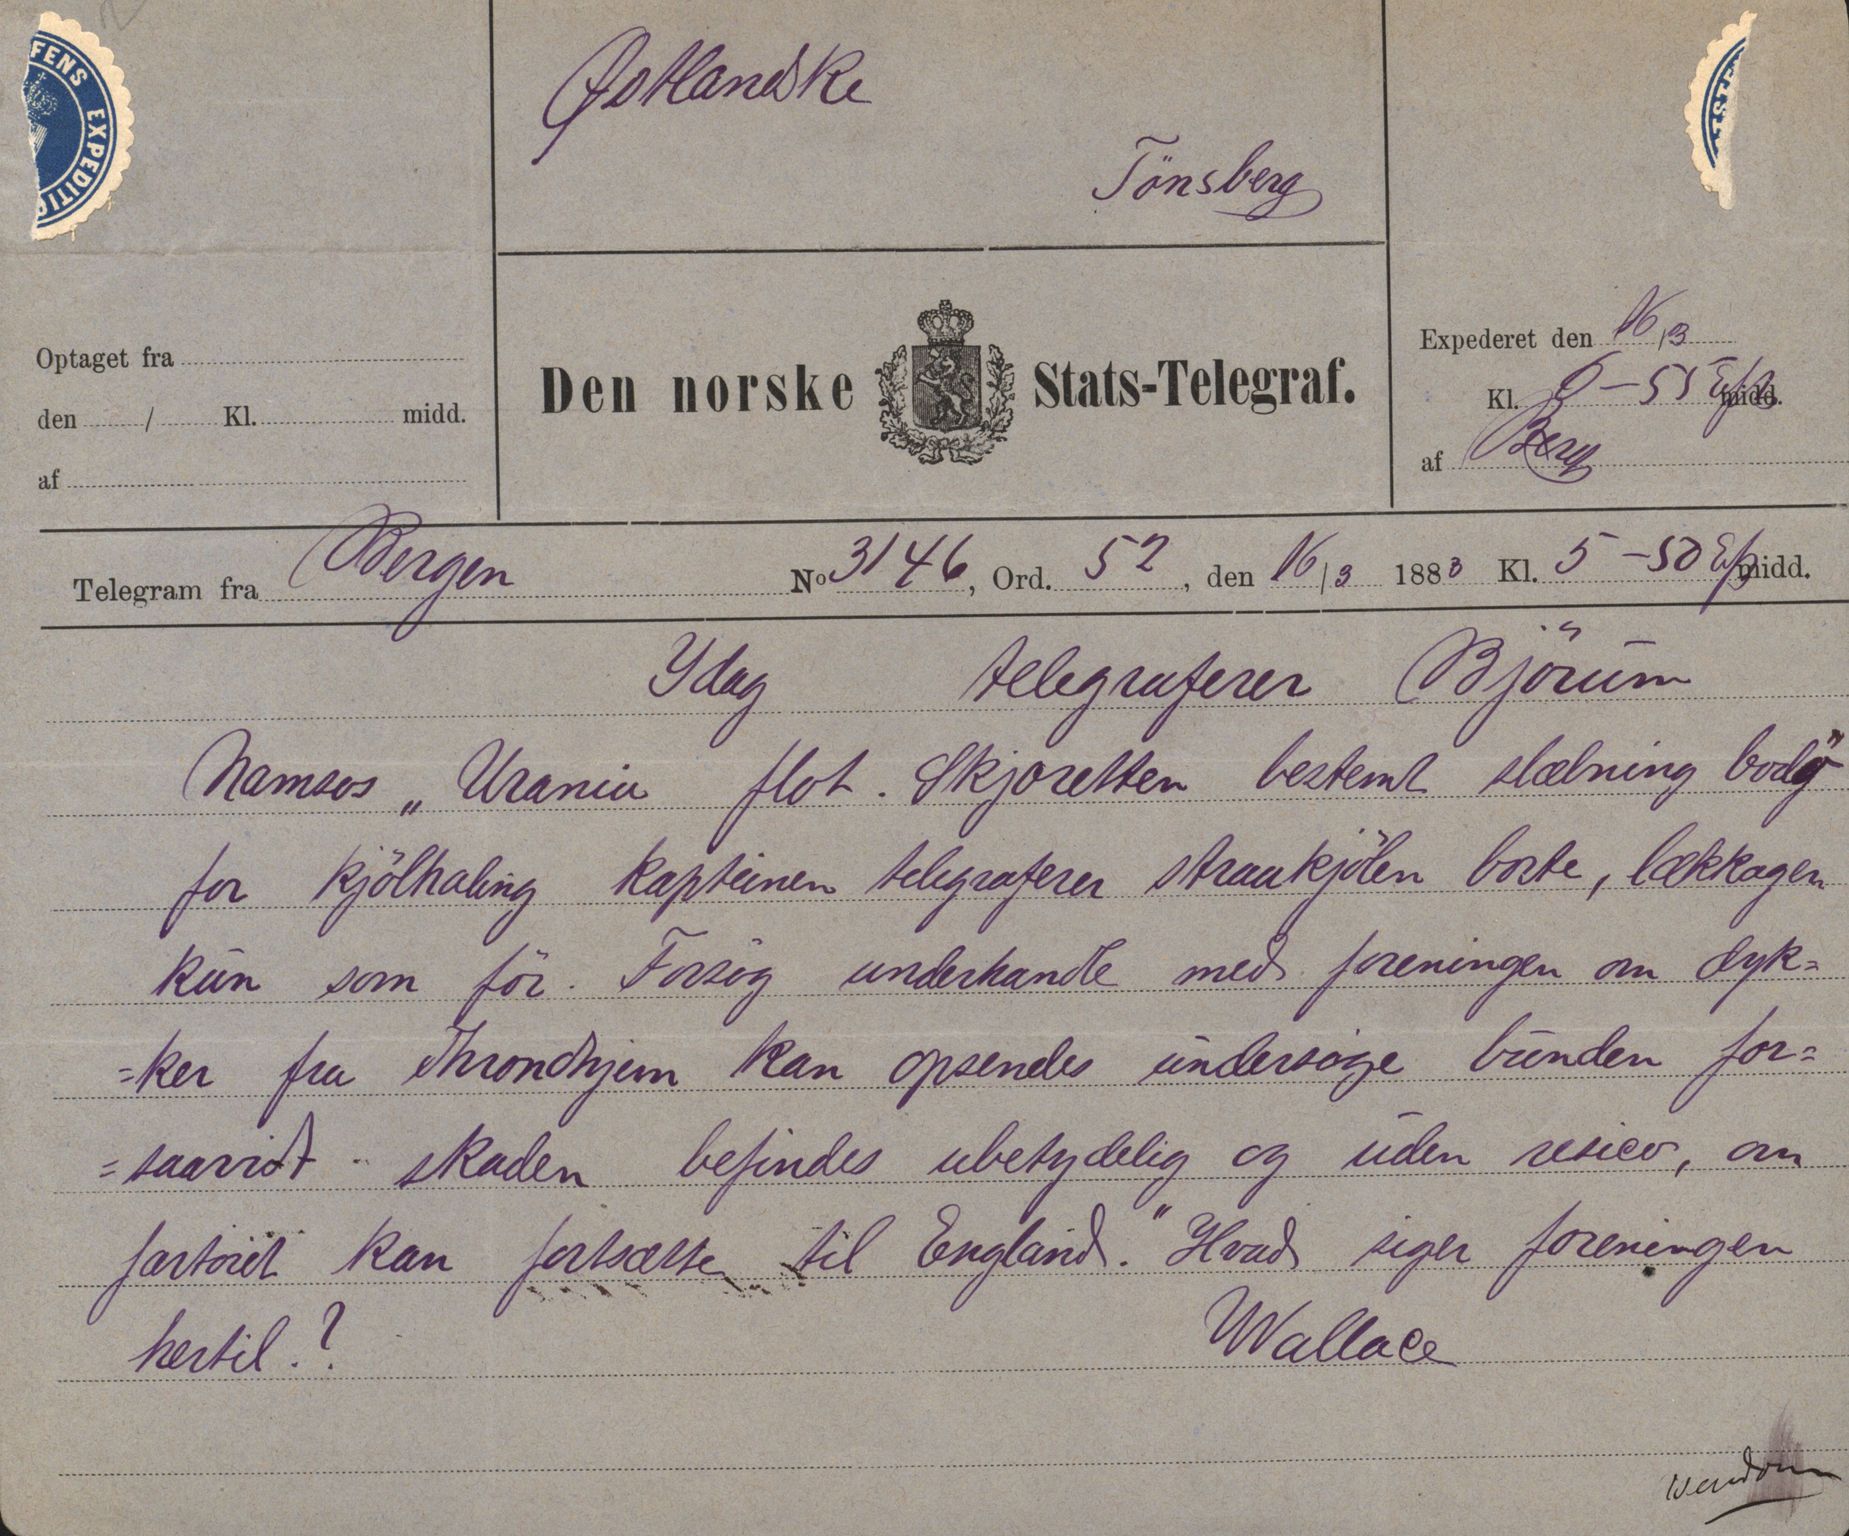 FENS EXPEDITIO
Østlandske
Tönsberg
Optaget fra
den / Kl. midd.
af
Den norske Stats-Telegraf.
Expederet den 16/3
Kl. 6-55 Efmidd.
af Berg
Telegram fra Bergen No 3146, Ord. 52, den 16/3 1883 Kl. 5-50 Efmidd.
Idag telegraferer Björum
Namsos „Urania flot. Skjøretten bestemt slæbning bodö
for kjölhaling kapteinen telegraferer straakjölen borte, lækkagen
kun som för. Forsög underhandle med foreningen om dyk=
=ker fra Throndhjem kan opsendes undersøge bunden for=
=saavidt skaden befindes ubetydelig og uden resico, om
fartöiet kan fortsætte til England." Hvad siger foreningen
hertil.?
Wallace